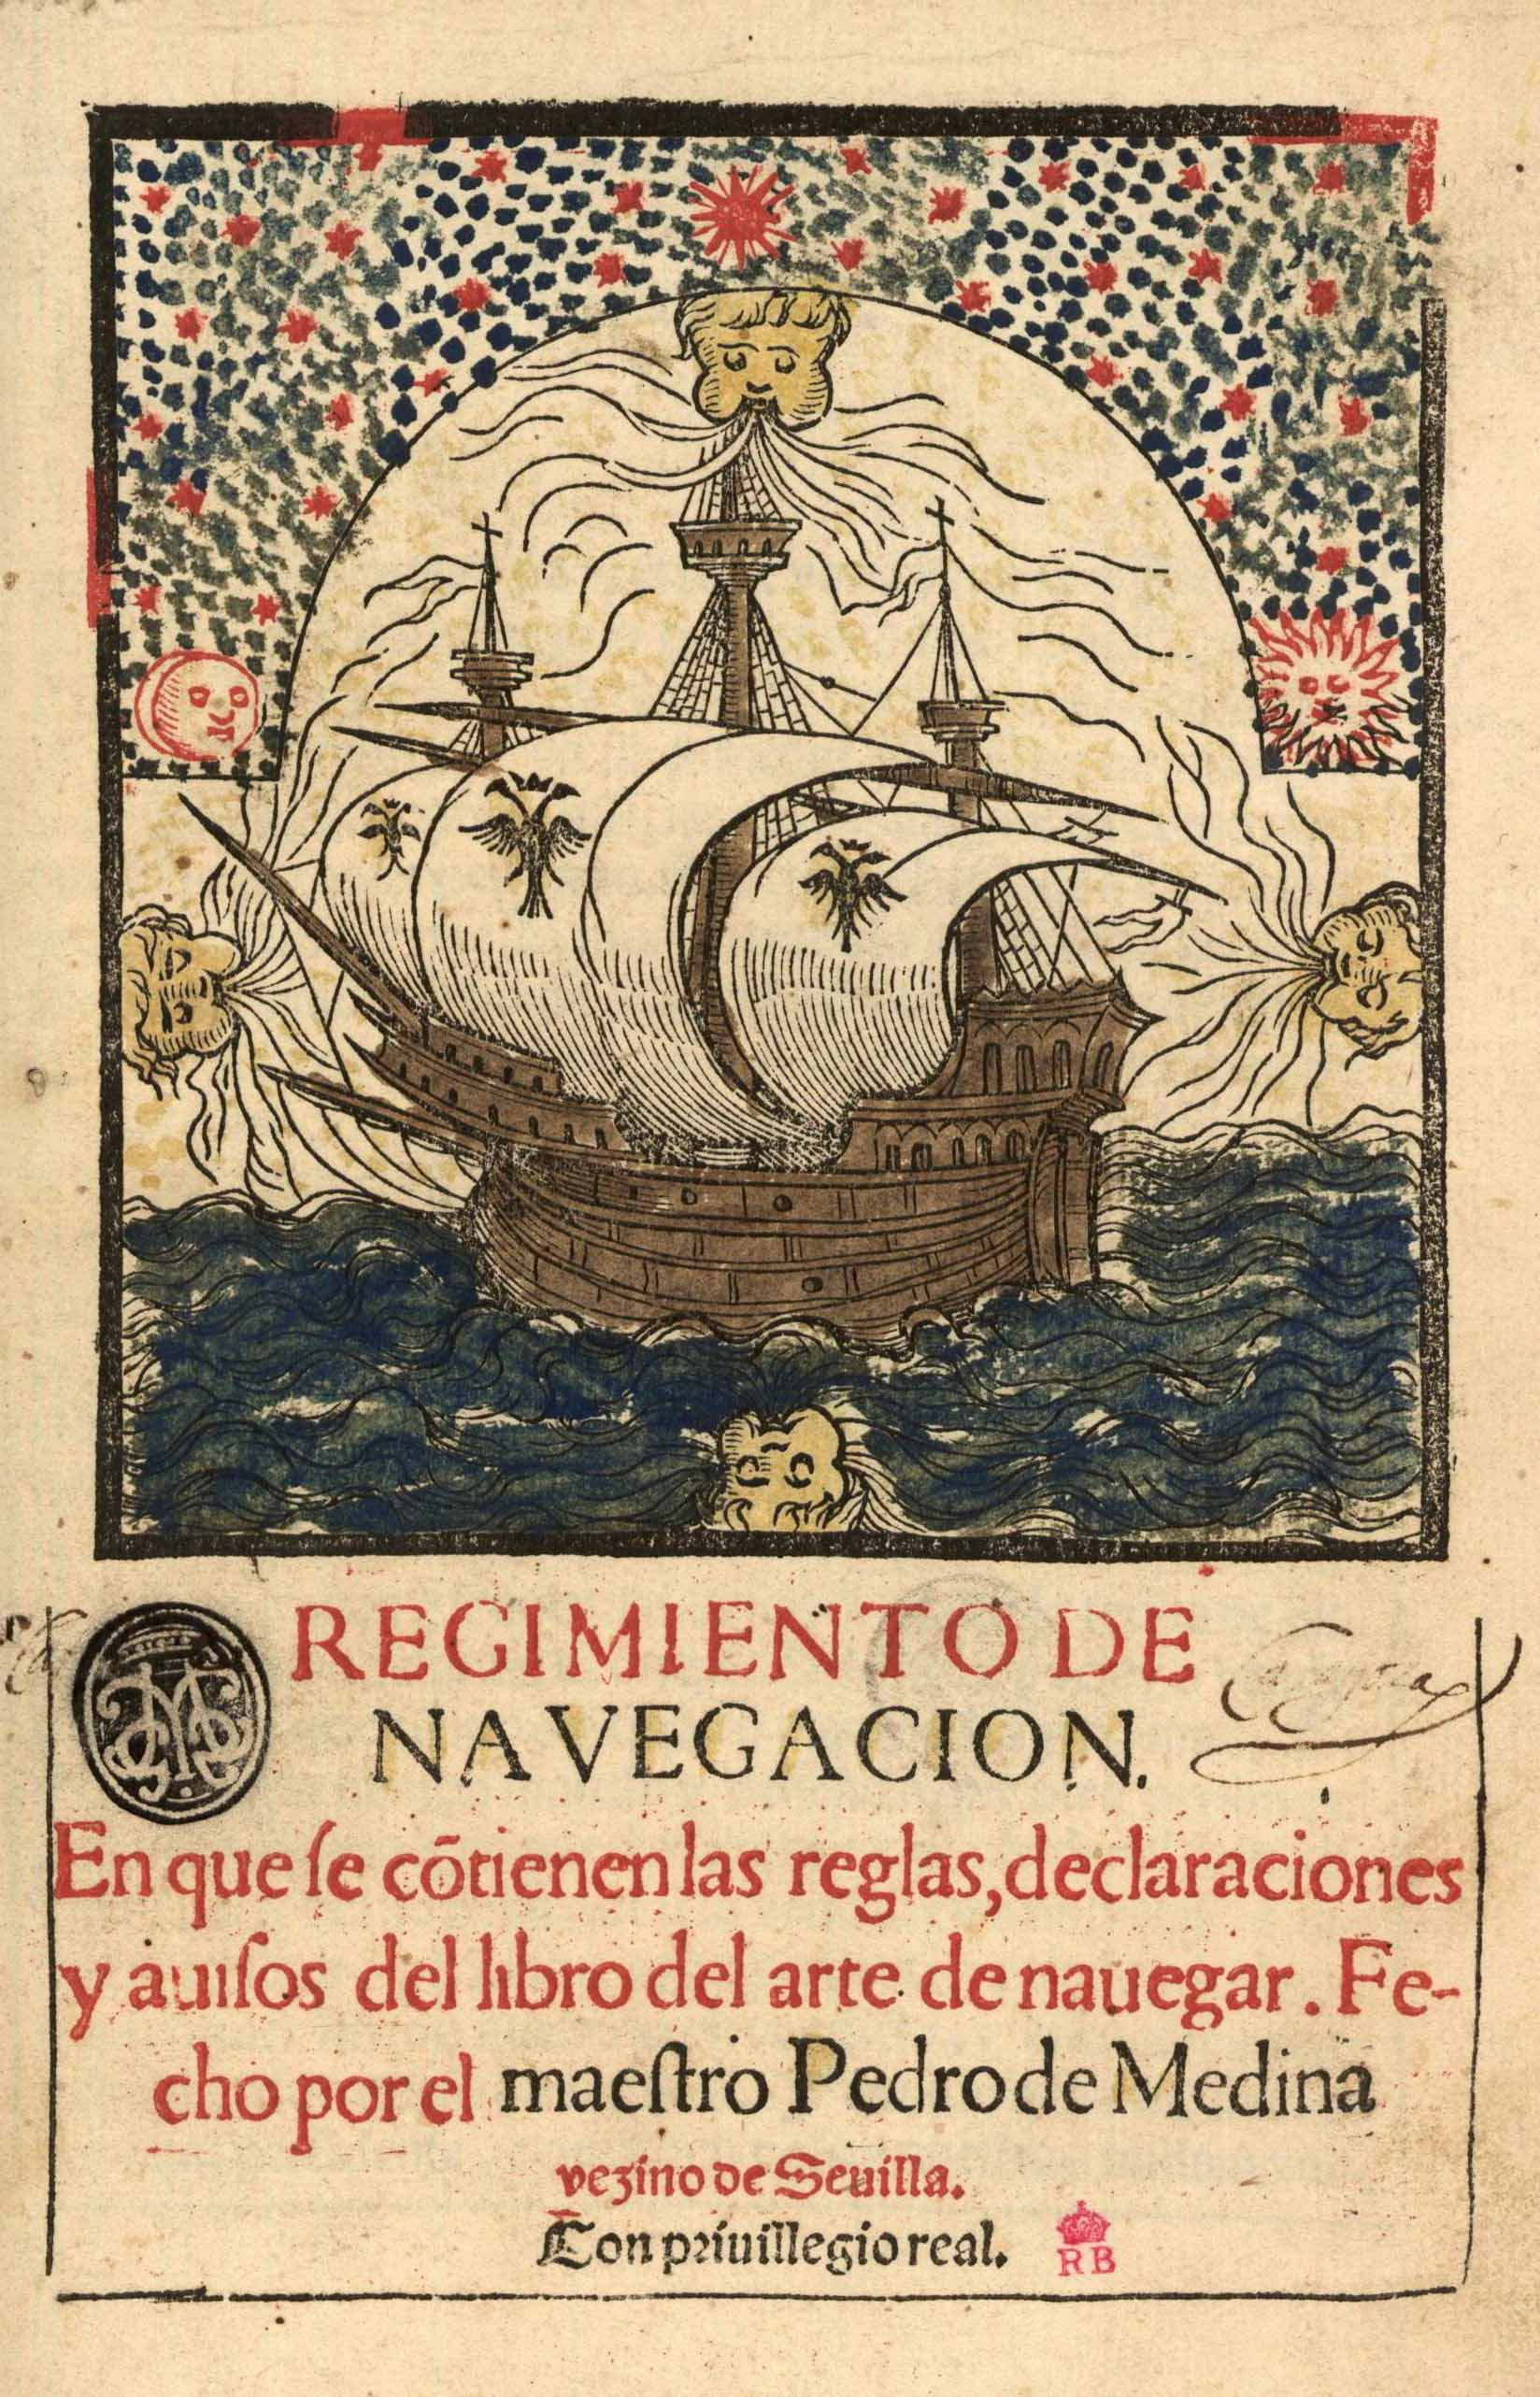 REGIMIENTO DE
NAVEGACION.
En que ſe cõtienen las reglas, declaraciones
y auiſos del libro del arte de nauegar. Fe-
cho por el maeſtro Pedro de Medina
vezino de Seuilla.
Con priuillegio real.
RB